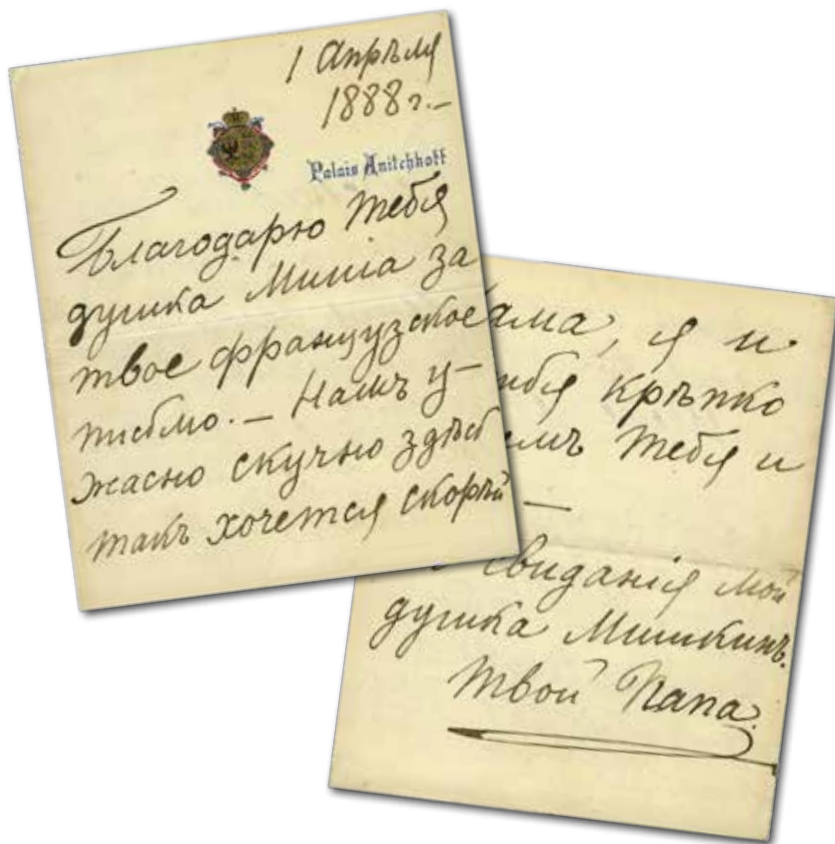 1 Апрѣля
1888 г.—
Palais Anitchkoff
Благодарю тебя
душка Миша за
твое французское
письмо. — Намъ у-
жасно скучно здѣсь
такъ хочется скорѣй
ама, я и
тебя крѣпко
емъ тебя и
—
свиданія мой
душка Мишкинъ.
твой Папа.